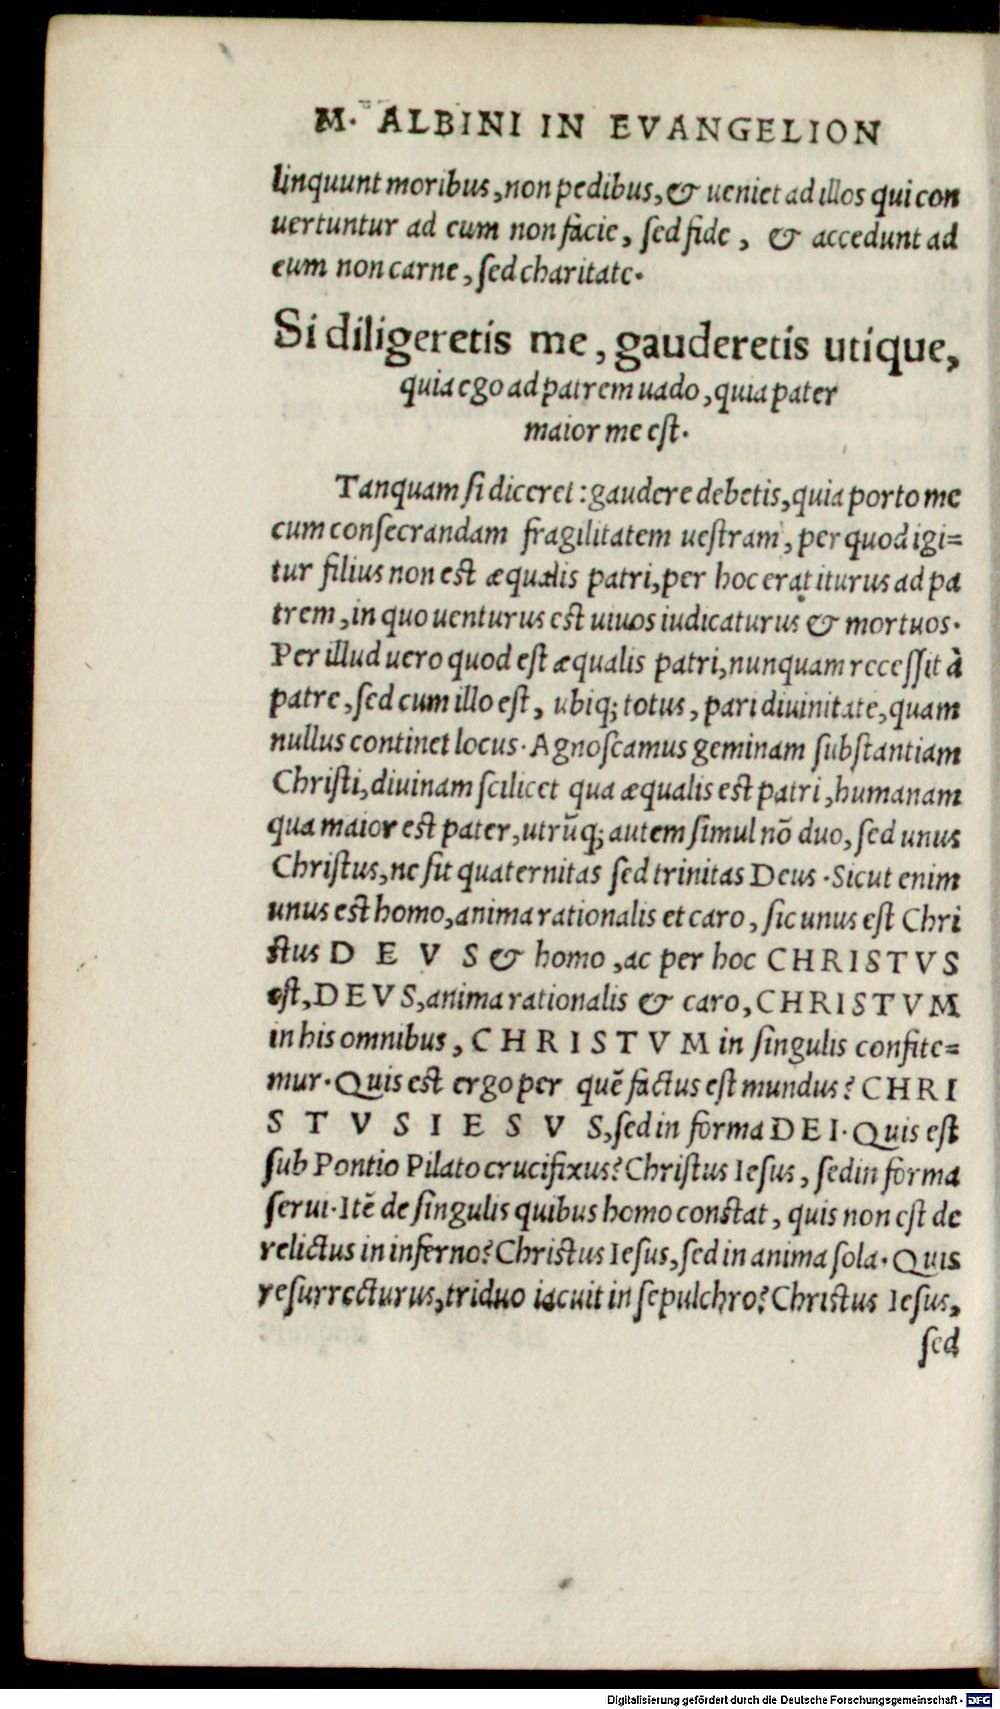 M. ALBINI IN EVANGELION
linquunt moribus, non pedibus, & ueniet ad illos qui con
uertuntur ad eum non facie, sed fide, & accedunt ad
eum non carne, sed charitate.
Si diligeretis me, gauderetis utique,
quia ego ad patrem uado, quia pater
maior me est.
Tanquam si diceret: gaudere debetis, quia porto me
cum consecrandam fragilitatem uestram, per quod igi=
tur filius non est æqualis patri, per hoc erat iturus ad pa
trem, in quo uenturus est uiuos iudicaturus & mortuos.
Per illud uero quod est æqualis patri, nunquam recessit à
patre, sed cum illo est, ubiq; totus, pari diuinitate, quam
nullus continet locus. Agnoscamus geminam substantiam
Christi, diuinam scilicet qua æqualis est patri, humanam
qua maior est pater, utrũq; autem simul nõ duo, sed unus
Christus, ne sit quaternitas sed trinitas Deus. Sicut enim
unus est homo, anima rationalis et caro, sic unus est Chri
stus D E V S & homo, ac per hoc CHRISTVS
est, DEVS, anima rationalis & caro, CHRISTVM
in his omnibus, C H R I S T V M in singulis confite=
mur. Quis est ergo per quẽ factus est mundus? CHRI
S T V S I E S V S, sed in forma DEI. Quis est
sub Pontio Pilato crucifixus? Christus Iesus, sed in forma
serui. Itẽ de singulis quibus homo constat, quis non est de
relictus in inferno? Christus Iesus, sed in anima sola. Quis
resurrecturus, triduo iacuit in sepulchro? Christus Iesus,
sed
Digitalisierung gefördert durch die Deutsche Forschungsgemeinschaft - DFG